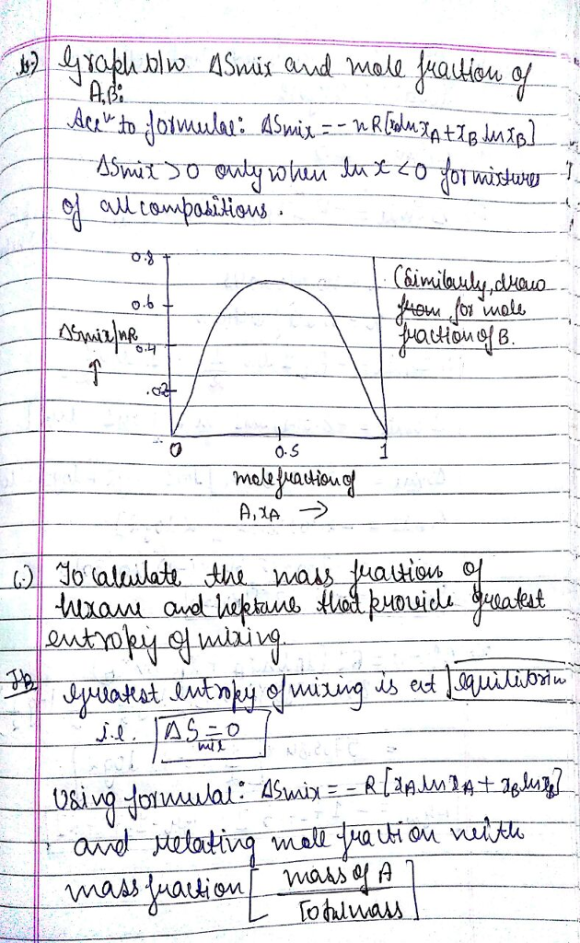 b.) Graph b/w ΔSmix and mole fraction of
A,B:
Accⁿ to formulae: ΔSmix = -nR[xAlnxA+xB lnxB]
ΔSmix >0 only when ln x <0 for mixtures
of all compositions.
0.8
0.6
ΔSmix/nR
0.4
↑
.02
0
0.5
1
mole fraction of
A, xA →
(Similarly, draw
from for mole
fraction of B.
(.) To calculate the mass fraction of
hexane and heptane that provide greatest
entropy of mixing.
greatest entropy of mixing is at equilibrium
i.e. ΔSmix = 0
Using formulae: ΔSmix = -R[xAlnxA + xBlnxB]
and relating mole fraction with
mass fraction [mass of A
Total mass]